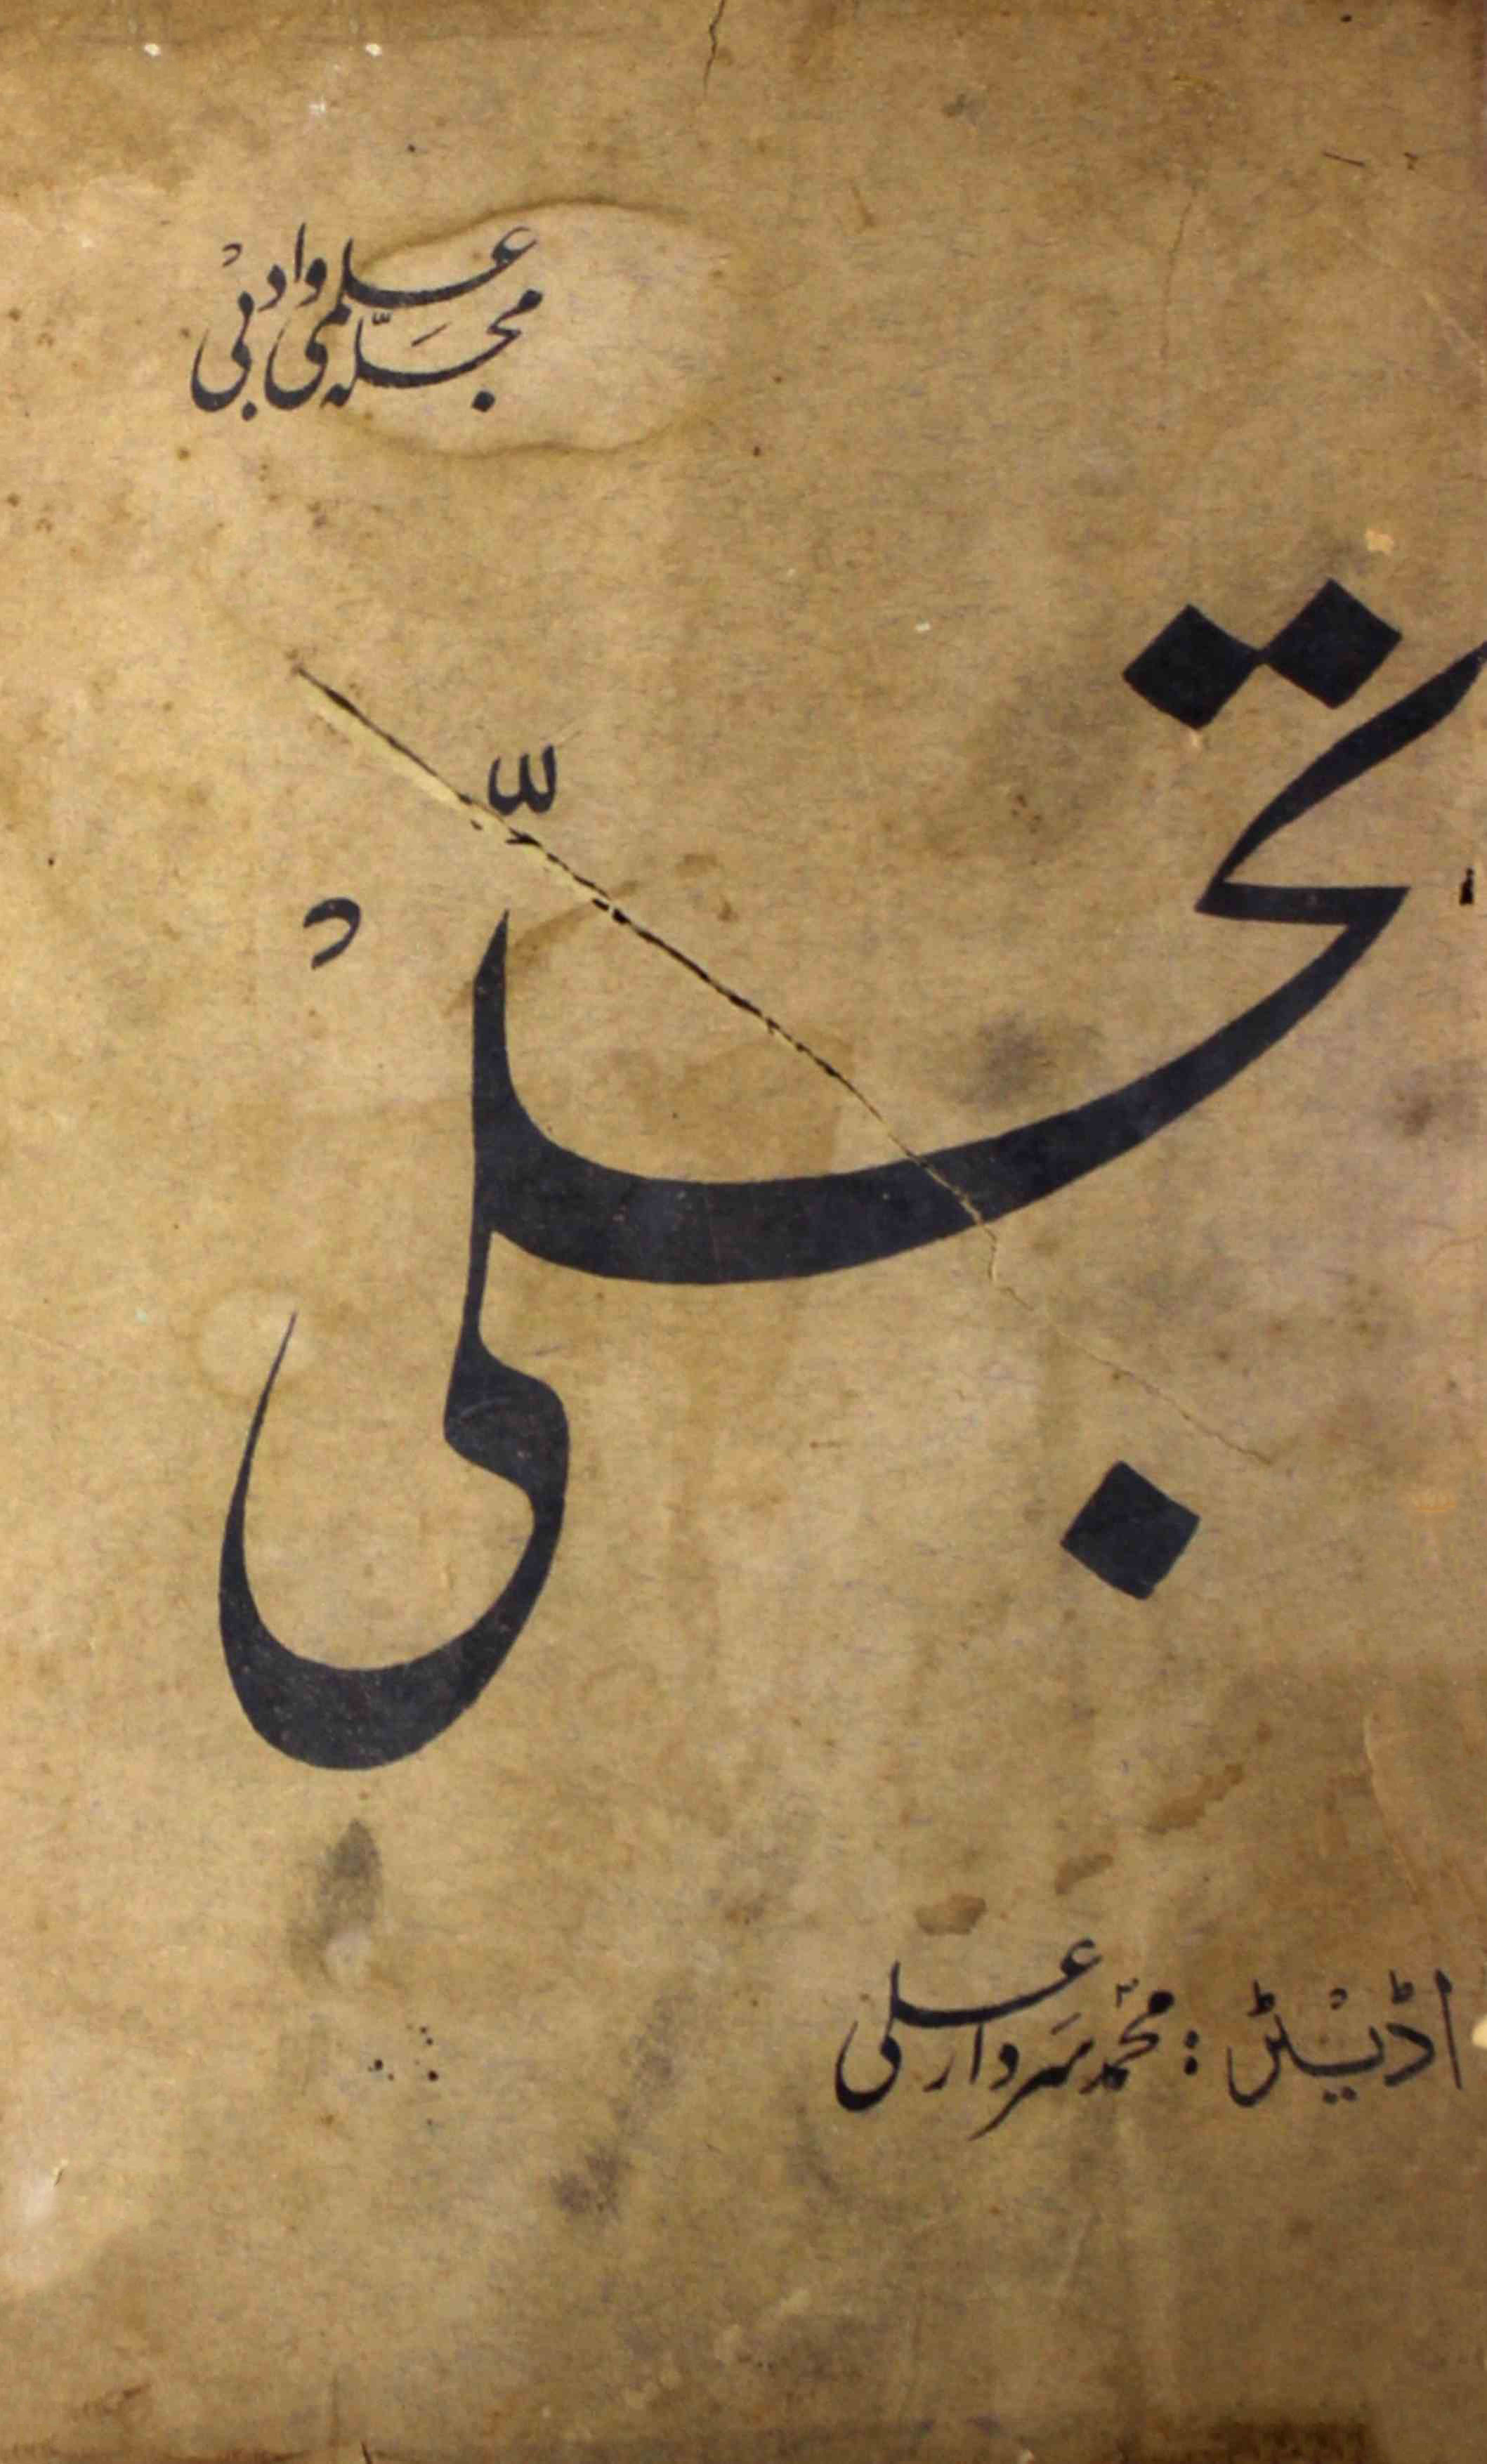 مجلّہ علمی و ادبی
تجلّی
اڈیٹر : محمّد سردار علی